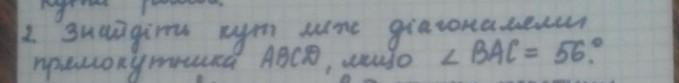 2. Знайдіть кут між діагоналями
прямокутника ABCD, якщо ∠ BAC = 56.°